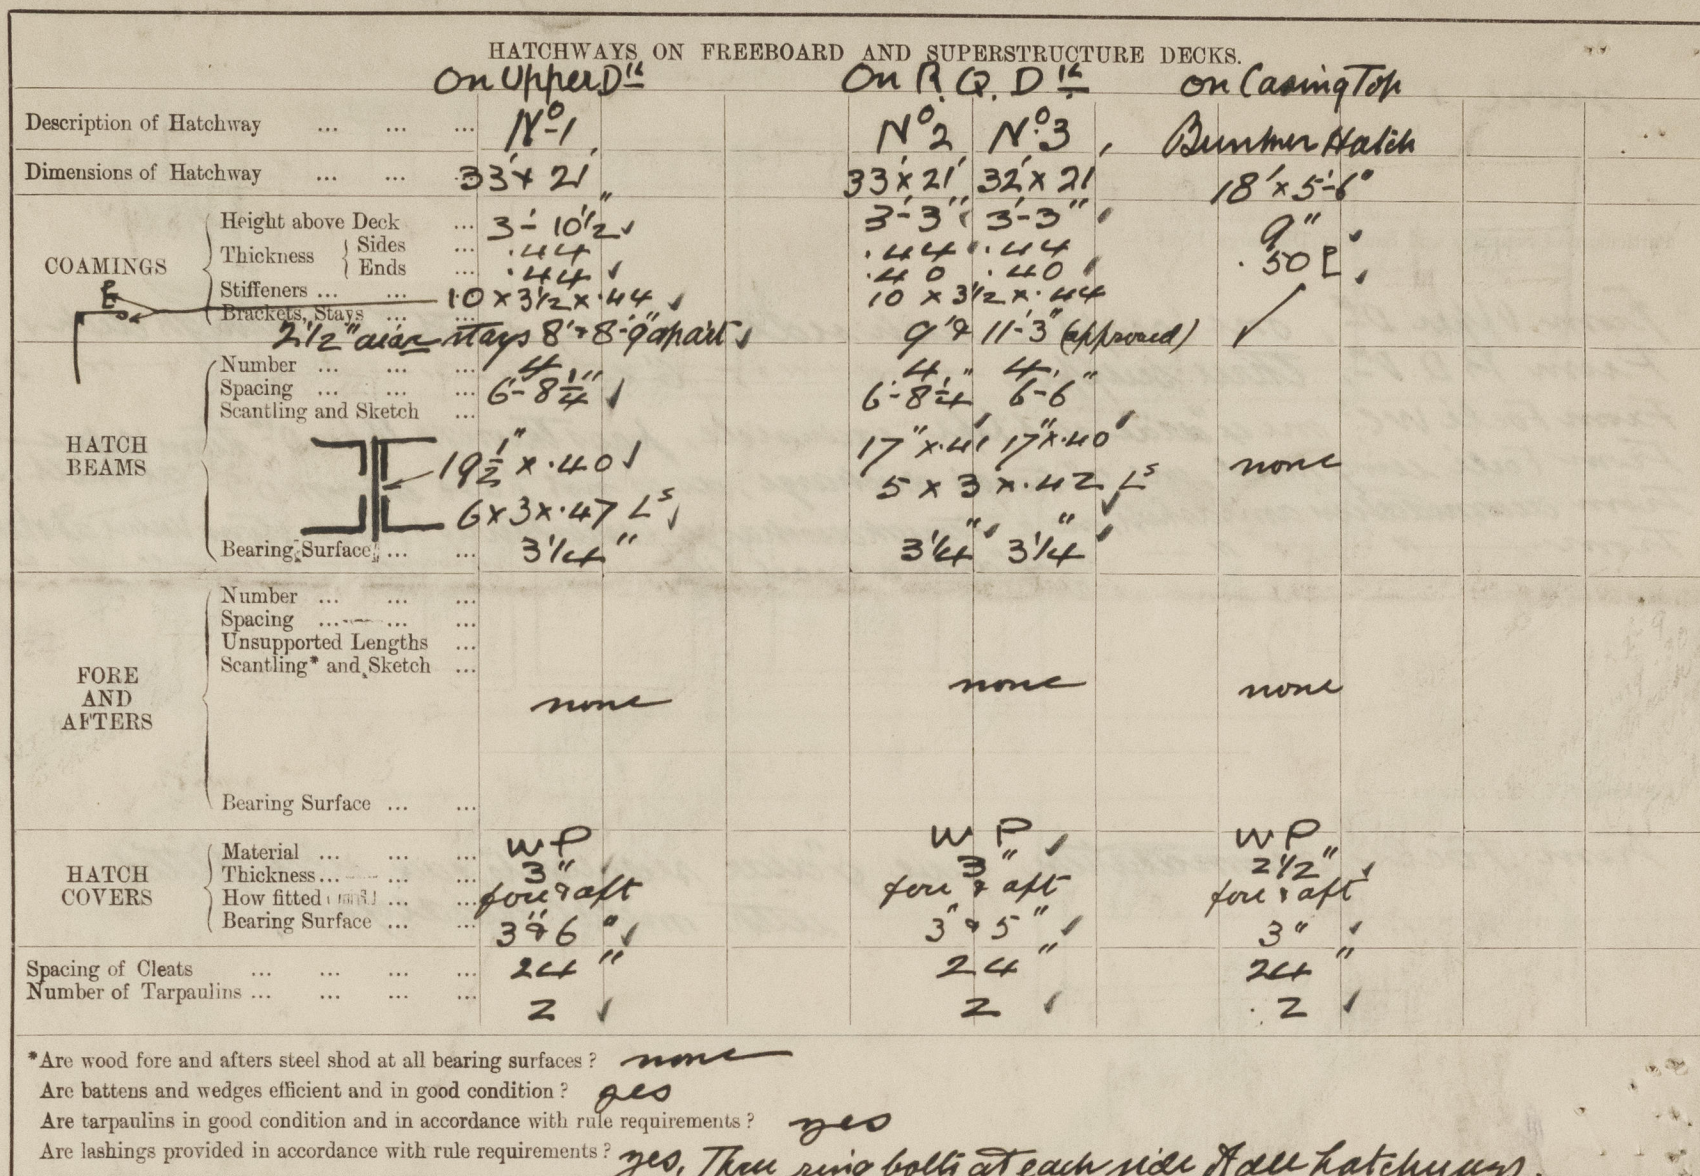 HATCHWAYS ON FREEBOARD AND SUPERSTRUCTURE DECKS.
On Upper Dk On R. Q. Dk on Casing Top
Description of Hatchway ... ... ... No 1 No 2 No 3, Bunker Hatch
Dimensions of Hatchway ... ... 33' x 21' 33' x 21' 32' x 21' 18' x 5'-6"
COAMINGS
Height above Deck ... 3'-10½" ✓ 3'-3" 3'-3" 9" ✓
Thickness { Sides ... .44 .44 .44 .50 P ✓
Ends ... .44 ✓ .40 .40
Stiffeners ... ... 10 x 3½ x .44 ✓ 10 x 3½ x .44
Brackets, Stays ...
2½" diar stays 8' & 8'-9" apart ✓ 9' & 11'-3" (approved) ✓
HATCH BEAMS
Number ... ... ... 4 4 4
Spacing ... ... ... 6'-8¼" ✓ 6'-8¼" 6'-6"
Scantling and Sketch ...
19½" x .40 ✓ 17" x .41 17" x .40 none
6 x 3 x .47 Ls ✓ 5 x 3 x .42 Ls ✓
Bearing Surface ... ... 3¼" 3¼" 3¼"
FORE AND AFTERS
Number ... ... ...
Spacing ... ... ...
Unsupported Lengths ...
Scantling* and Sketch ...
none none none
Bearing Surface ... ...
HATCH COVERS
Material ... ... ... WP WP ✓ WP
Thickness ... ... 3" 3" 2½" ✓
How fitted ... ... fore & aft fore & aft fore & aft
Bearing Surface ... ... 3" & 6" ✓ 3" & 5" ✓ 3" ✓
Spacing of Cleats ... ... ... ... 24" 24" 24"
Number of Tarpaulins ... ... ... ... 2 ✓ 2 ✓ 2 ✓
*Are wood fore and afters steel shod at all bearing surfaces? none
Are battens and wedges efficient and in good condition? yes
Are tarpaulins in good condition and in accordance with rule requirements? yes
Are lashings provided in accordance with rule requirements? yes, Three ring bolts at each side of all hatchways.